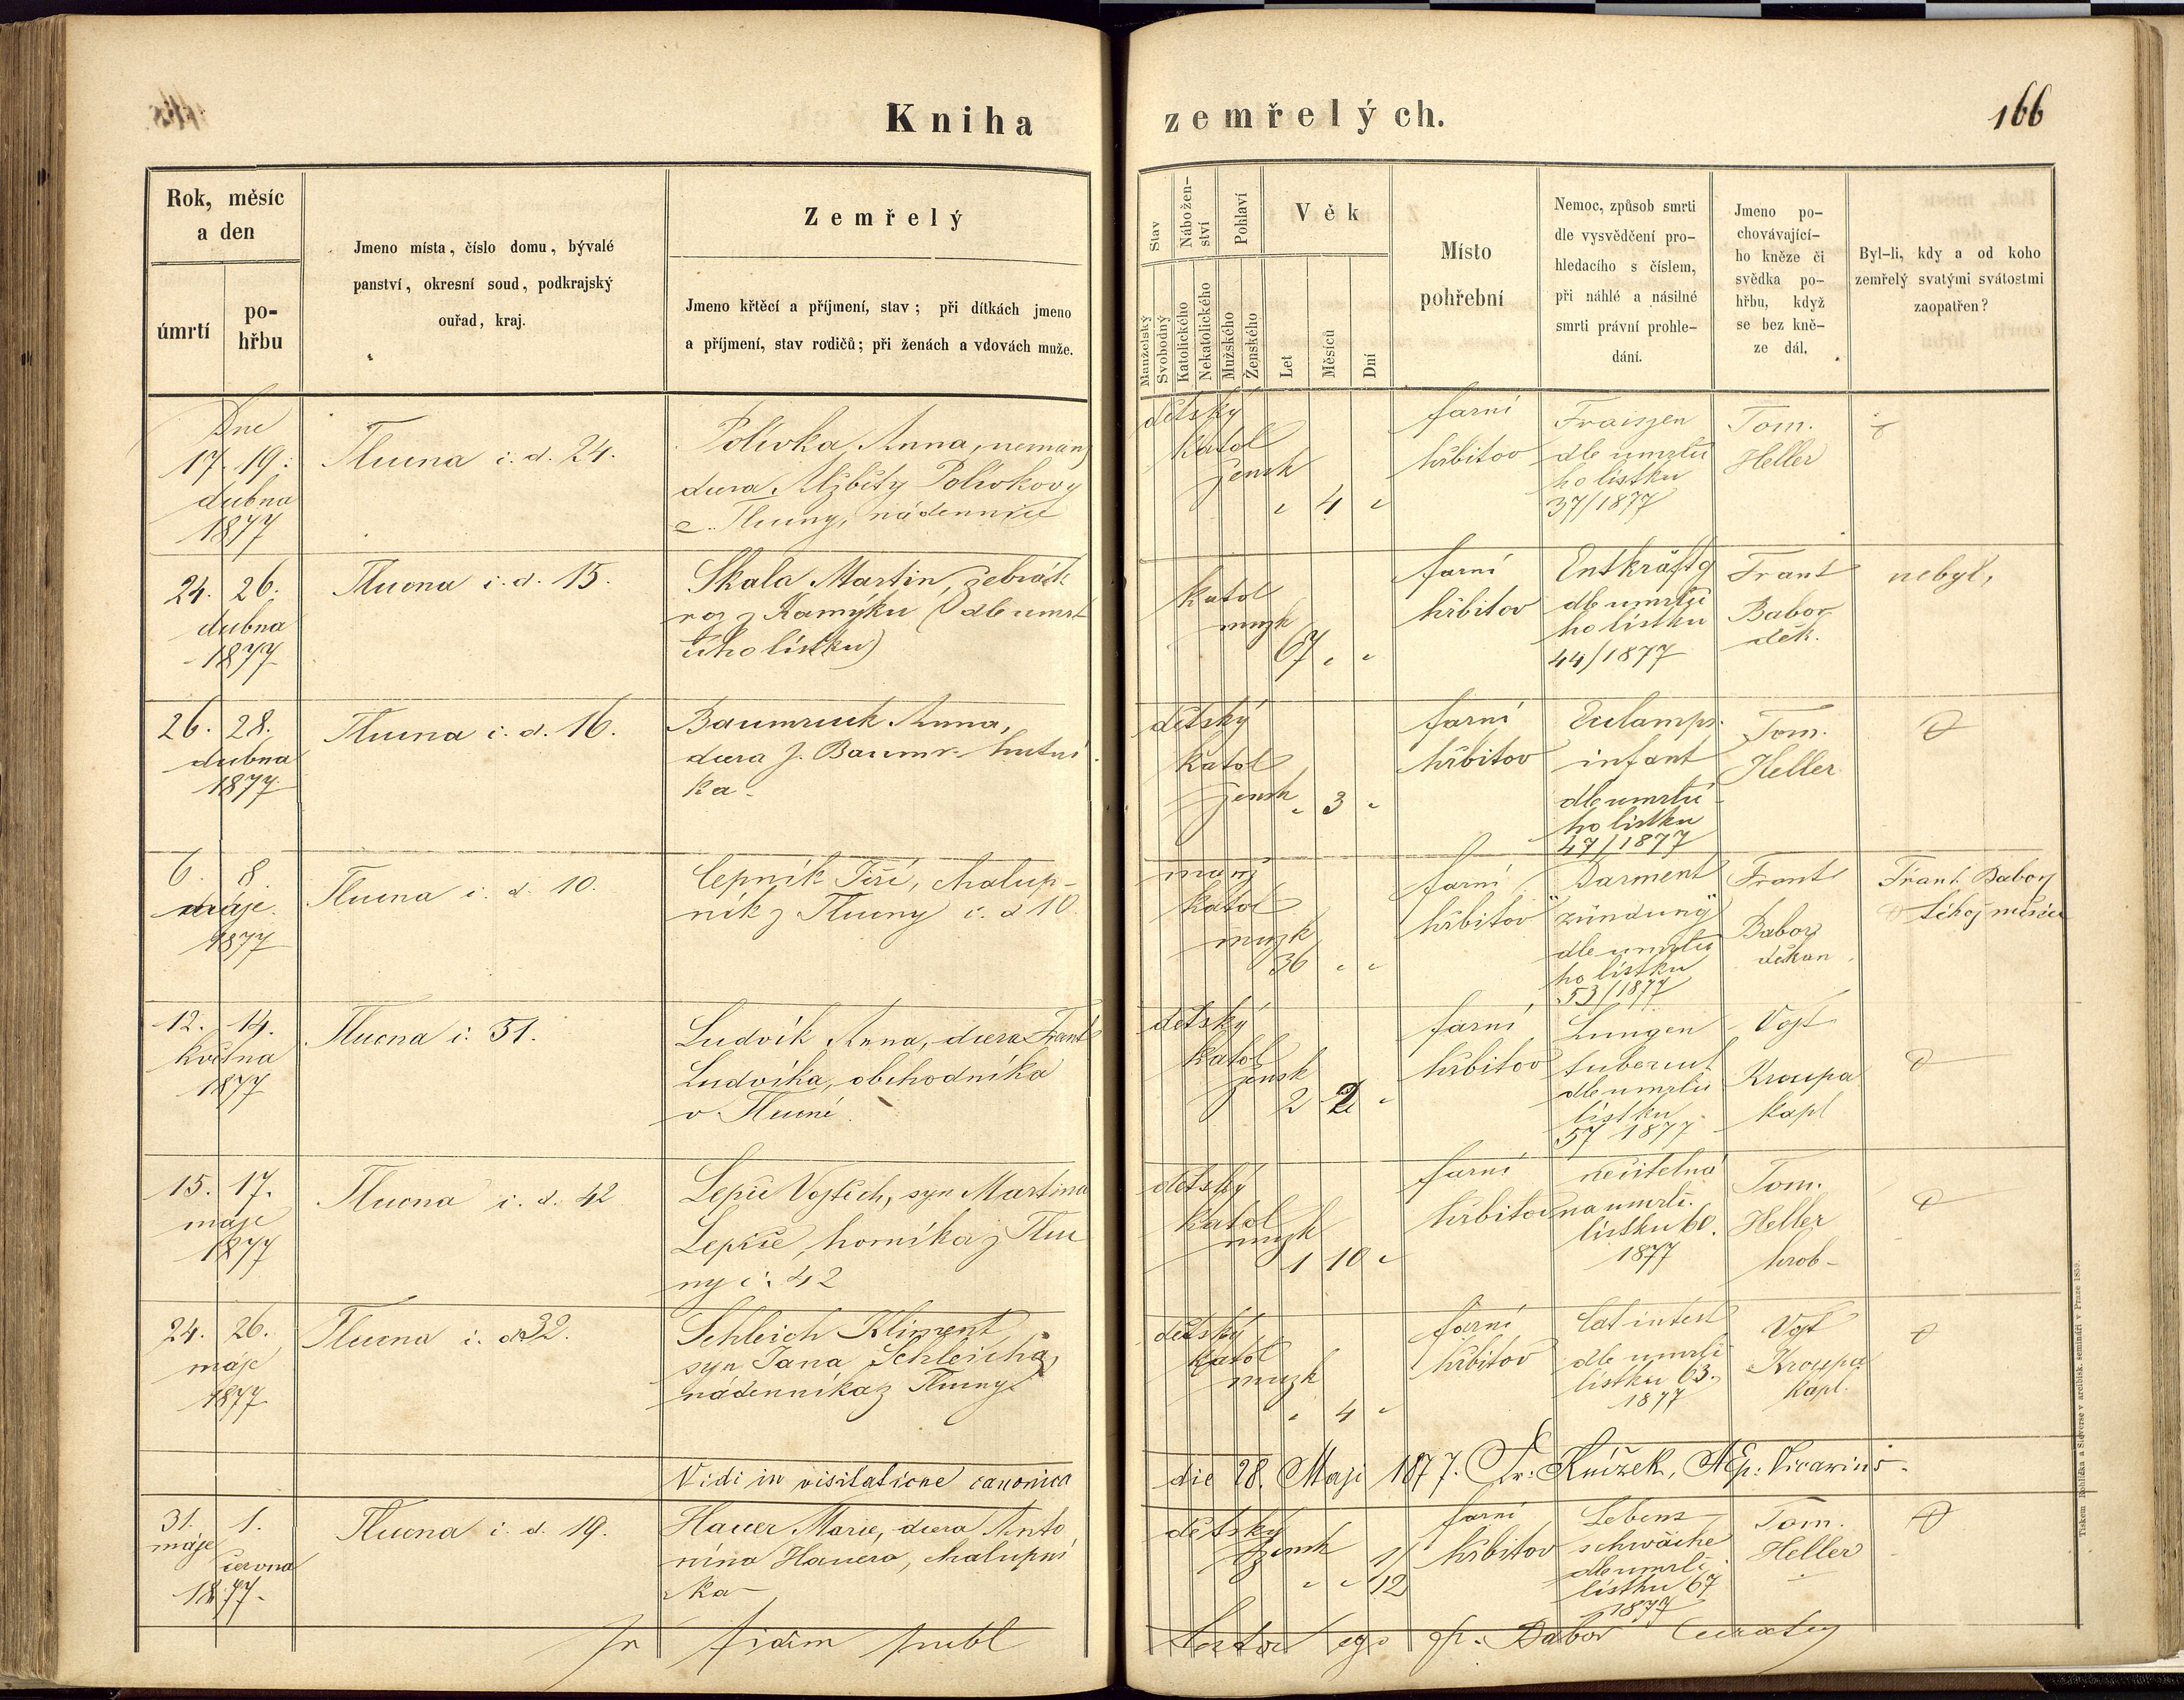 Kniha zemřelých.
166
Rok, měsíc
a den
úmrtí
po-
hřbu
Jmeno místa, číslo domu, bývalé
panství, okresní soud, podkrajský
ouřad, kraj.
Zemřelý
Jmeno křtěcí a příjmení, stav; při dítkách jmeno
a příjmení, stav rodičů; při ženách a vdovách muže.
Stav
Manželský
Svobodný
Nábožen-
ství
Katolického
Nekatolického
Pohlaví
Mužského
Ženského
Věk
Let
Měsíců
Dní
Místo
pohřební
Nemoc, způsob smrti
dle vysvědčení pro-
hledacího s číslem,
při náhlé a násilné
smrti právní prohle-
dání.
Jmeno po-
chovávající-
ho kněze či
svědka po-
hřbu, když
se bez kně-
ze dál.
Byl-li, kdy a od koho
zemřelý svatými svátostmi
zaopatřen?
Dne
17. 19.
dubna
1877
Tlucna č. d. 24.
Polívka Anna, neman
dcera Alžběty Polívkovy
z Tlucny, nádennice
dětský
katol
žensk
4
farní
hřbitov
Fraisen
dle úmrtči
ho lístku
37/1877
Tom.
Heller
24. 26.
dubna
1877
Tlucna č. d. 15.
Skala Martin, žebrák
roz z Kamýku (dle úmrt
čího lístku)
katol
muzk
67
farní
hřbitov
Entkräftg
dle úmrtčí
ho lístku
44/1877
Frant
Babor
děk.
nebyl,
26. 28.
dubna
1877
Tlucna č. d. 16.
Baumruck Anna,
dcera J. Baumr. hutní
ka
dětský
katol
žensk
3
farní
hřbitov
Eclamps.
infant
dle úmrtčí
ho lístku
47/1877
Tom.
Heller
6. 8.
máje
1877
Tlucna č. d. 10.
Cepník Jiří, chalup-
ník z Tlucny č. d 10
manž
katol
muzk
36
farní
hřbitov
Darment
zündung
dle úmrtčí
ho lístku
53/1877
Frant
Babor
děkan
Frant. Babor
téhož měsíce
12. 14.
května
1877
Tlucna č. 51.
Ludvík Anna, dcera Frant
Ludvíka, obchodníka
v Tlucné
dětský
katol
žensk
2 2
farní
hřbitov
Lungen
tubercul
dle úmrtčí
lístku
57 1877
Vojt
Kroupa
kapl
15. 17.
máje
1877
Tlucna č. d. 42
Lepič Vojtěch, syn Martina
Lepiče, horníka z Tluc
ny č. 42
dětský
katol
muzk
1 10
farní
hřbitov
nečitelná
na úmrtč.
lístku 60.
1877
Tom.
Heller
hrob-
24. 26.
máje
1877
Tlucna č. d 32.
Schleich Kliment,
syn Jana Schleicha,
nádenníka z Tlucny
dětský
katol
muzk
4
farní
hřbitov
Cat intest
dle úmrtč
lístku 63.
1877
Vojt
Kroupa
kapl.
Vidi in visitatione canonica die 28. Maji 1877. Fr. Knížek, AEp. Vicarius.
31. 1.
máje
června
1877.
Tlucna č. d. 19.
Hauer Marie, dcera Anto
nína Hauera, chalupní
ka
dětský
žensk
1/12
farní
hřbitov
Lebens
schwäche
dle úmrtč
lístku 67
1877
Tom.
Heller
In fidem publ
Babor
Tiskem Rohlíčka a Sieverse v arcibisk. semináři v Praze 1859.